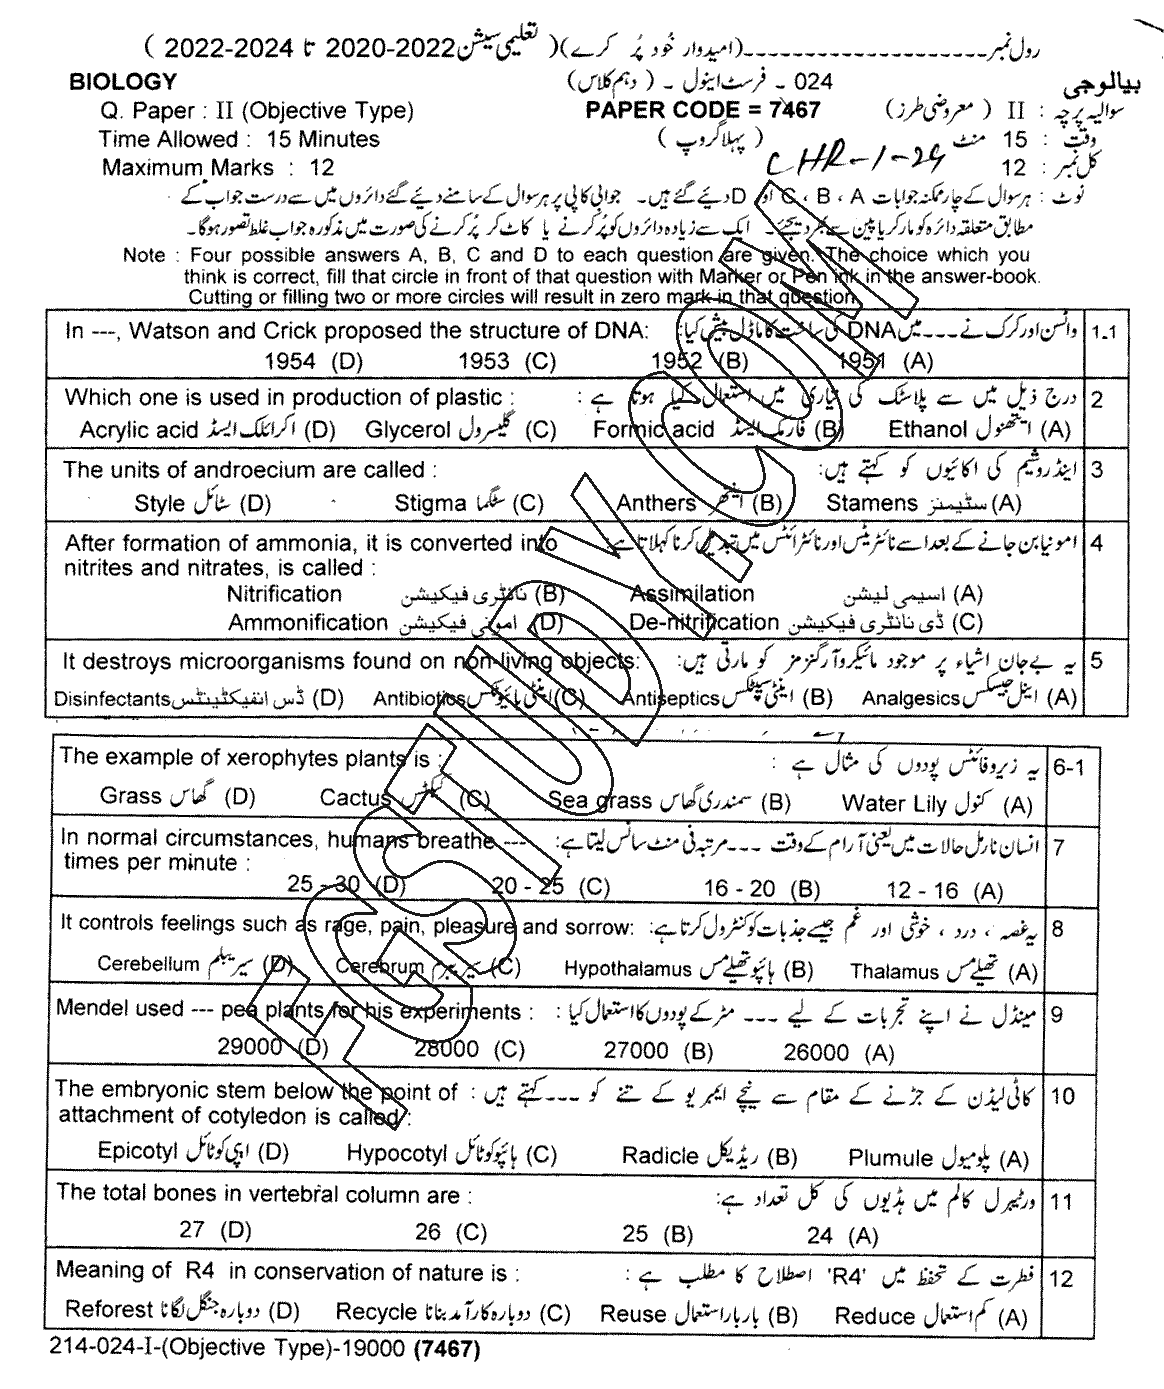 رول نمبر ـــــــــــــــــــــ(امیدوار خود پُر کرے)( تعلیمی سیشن 2022-2020 تا 2024-2022 )
BIOLOGY 024 - فرسٹ اینول - (دہم کلاس) بیالوجی
Q. Paper : II (Objective Type) PAPER CODE = 7467 سوالیہ پرچہ : II ( معروضی طرز )
Time Allowed : 15 Minutes ( پہلا گروپ ) وقت : 15 منٹ
Maximum Marks : 12 CHR-1-24 کل نمبر : 12
نوٹ : ہر سوال کے چار ممکنہ جوابات A ، B ، C اور D دیئے گئے ہیں۔ جوابی کاپی پر ہر سوال کے سامنے دیئے گئے دائروں میں سے درست جواب کے
مطابق متعلقہ دائرہ کو مارکر یا پین سے بھر دیجئے۔ ایک سے زیادہ دائروں کو پُر کرنے یا کاٹ کر پُر کرنے کی صورت میں مذکورہ جواب غلط تصور ہوگا۔
Note : Four possible answers A, B, C and D to each question are given. The choice which you
think is correct, fill that circle in front of that question with Marker or Pen ink in the answer-book.
Cutting or filling two or more circles will result in zero mark in that question.
In ---, Watson and Crick proposed the structure of DNA: واٹسن اور کرک نے ۔۔۔ میں DNA کی ساخت کا ماڈل پیش کیا: 1.1
1954 (D) 1953 (C) 1952 (B) 1951 (A)
Which one is used in production of plastic : درج ذیل میں سے پلاسٹک کی تیاری میں استعمال کیا ہوتا ہے : 2
Acrylic acid اکرائلک ایسڈ (D) Glycerol گلیسرول (C) Formic acid فارمک ایسڈ (B) Ethanol ایتھنول (A)
The units of androecium are called : اینڈروشیم کی اکائیوں کو کہتے ہیں: 3
Style سٹائل (D) Stigma سٹگما (C) Anthers انتھر (B) Stamens سٹیمنز (A)
After formation of ammonia, it is converted into امونیا بن جانے کے بعد اسے نائٹریٹس اور نائٹرائٹس میں تبدیل کرنا کہلاتا ہے: 4
nitrites and nitrates, is called :
Nitrification نائٹری فیکیشن (B) Assimilation اسیمی لیشن (A)
Ammonification امونی فیکیشن (D) De-nitrification ڈی نائٹری فیکیشن (C)
It destroys microorganisms found on non-living objects: یہ بےجان اشیاء پر موجود مائیکروآرگنزمز کو مارتی ہیں: 5
Disinfectants ڈس انفیکٹینٹس (D) Antibiotics اینٹی بائیوٹکس (C) Antiseptics اینٹی سیپٹکس (B) Analgesics اینل جیسکس (A)
The example of xerophytes plants is : یہ زیروفائٹس پودوں کی مثال ہے : 6-1
Grass گھاس (D) Cactus کیکٹس (C) Sea grass سمندری گھاس (B) Water Lily کنول (A)
In normal circumstances, humans breathe --- انسان نارمل حالات میں یعنی آرام کے وقت ۔۔۔ مرتبہ فی منٹ سانس لیتا ہے: 7
times per minute :
25 - 30 (D) 20 - 25 (C) 16 - 20 (B) 12 - 16 (A)
It controls feelings such as rage, pain, pleasure and sorrow: یہ غصہ ، درد ، خوشی اور غم جیسے جذبات کو کنٹرول کرتا ہے: 8
Cerebellum سیریبلم (D) Cerebrum سیریبرم (C) Hypothalamus ہائپوتھیلمس (B) Thalamus تھیلمس (A)
Mendel used --- pea plants for his experiments : مینڈل نے اپنے تجربات کے لیے ۔۔۔ مٹر کے پودوں کا استعمال کیا : 9
29000 (D) 28000 (C) 27000 (B) 26000 (A)
The embryonic stem below the point of کاٹی لیڈن کے جڑنے کے مقام سے نیچے ایمبریو کے تنے کو ۔۔۔ کہتے ہیں : 10
attachment of cotyledon is called :
Epicotyl اپی کوٹائل (D) Hypocotyl ہائپوکوٹائل (C) Radicle ریڈیکل (B) Plumule پلومیول (A)
The total bones in vertebral column are : ورٹیبرل کالم میں ہڈیوں کی کل تعداد ہے: 11
27 (D) 26 (C) 25 (B) 24 (A)
Meaning of R4 in conservation of nature is : فطرت کے تحفظ میں 'R4' اصطلاح کا مطلب ہے : 12
Reforest دوبارہ جنگل لگانا (D) Recycle دوبارہ کارآمد بنانا (C) Reuse بار بار استعمال (B) Reduce کم استعمال (A)
214-024-I-(Objective Type)-19000 (7467)
FGSTUDY.COM